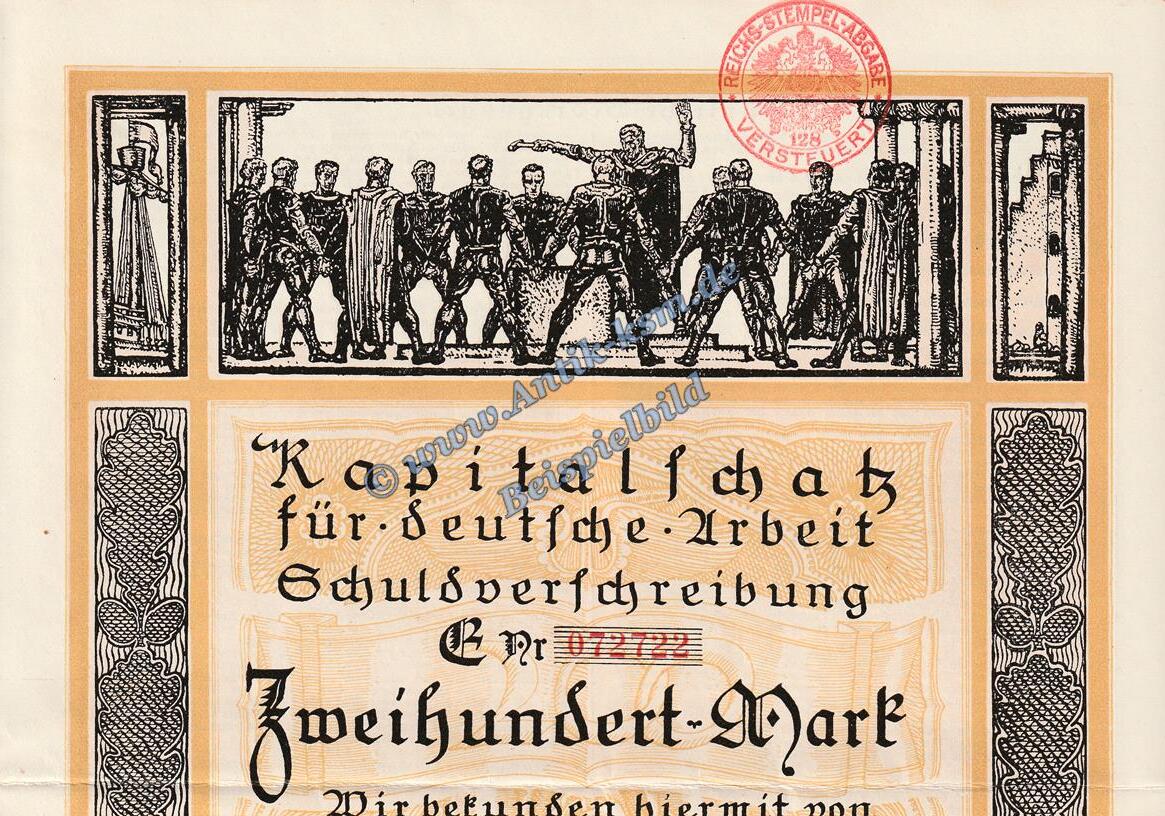 REICHS-STEMPEL-ABGABE
128
VERSTEUERT
Kapitalschatz
für·deutsche·Arbeit
Schuldverschreibung
E Nr 072722
Zweihundert-Mark
Wir bekunden hiermit von
© www.Antik-ksm.de
Beispielbild